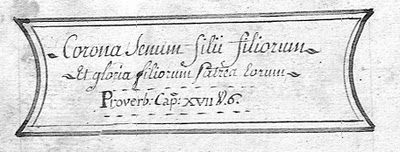 Corona Senum filii filiorum
Et gloria filiorum Patres eorum
Proverb: Cap: XVII V. 6.